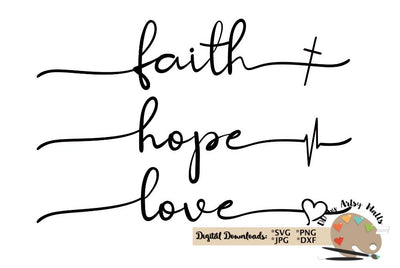 faith
hope
love
Digital Downloads: *SVG *PNG
*JPG *DXF
Artsy Mall's